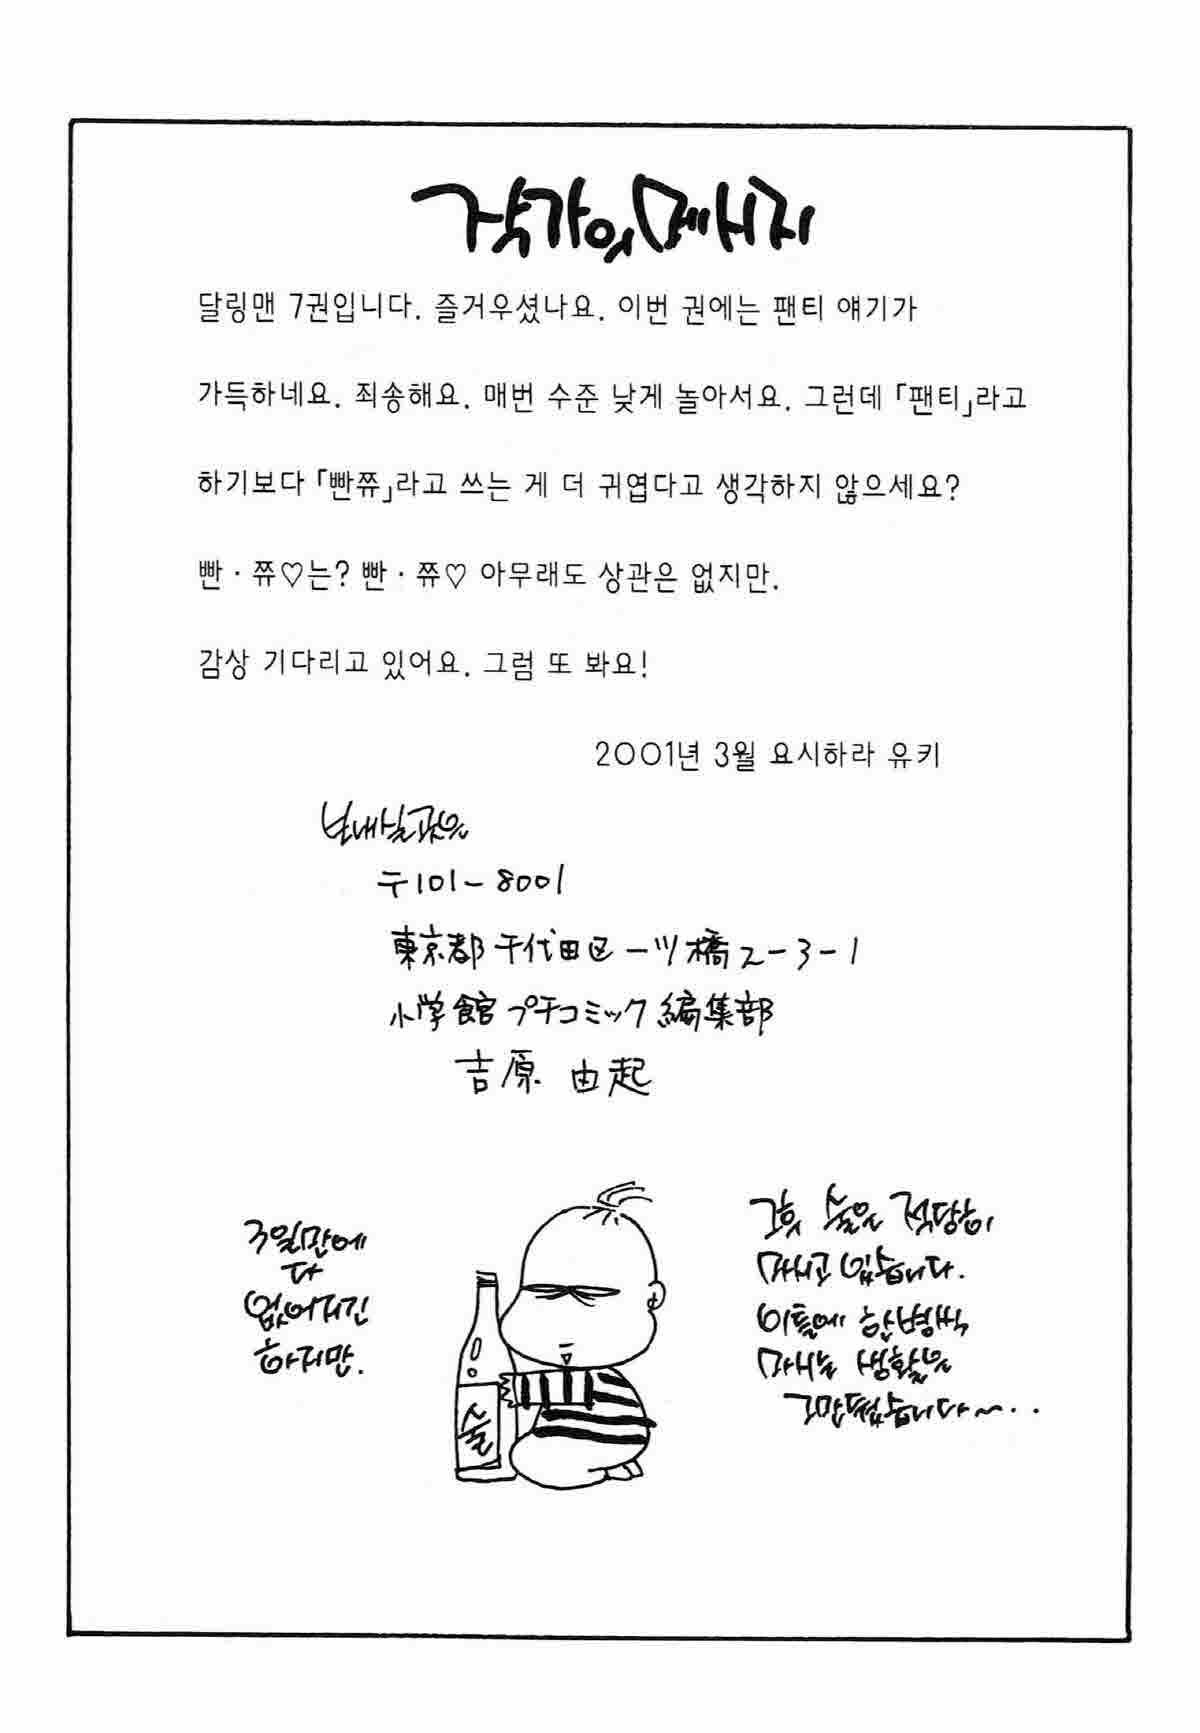 작가의 메시지
달링맨 7권입니다. 즐거우셨나요. 이번 권에는 팬티 얘기가
가득하네요. 죄송해요. 매번 수준 낮게 놀아서요. 그런데 「팬티」라고
하기보다 「빤쮸」라고 쓰는 게 더 귀엽다고 생각하지 않으세요?
빤·쮸♡는? 빤·쮸♡ 아무래도 상관은 없지만.
감상 기다리고 있어요. 그럼 또 봐요!
2001년 3월 요시하라 유키
보내실 곳은
〒101-8001
東京都千代田区一ツ橋2-3-1
小学館プチコミック編集部
吉原 由起
3일만에
다
없어지긴
하지만.
술
그후 술은 적당히
마시고 있습니다.
이틀에 한병씩
마시는 생활은
그만뒀습니다~..